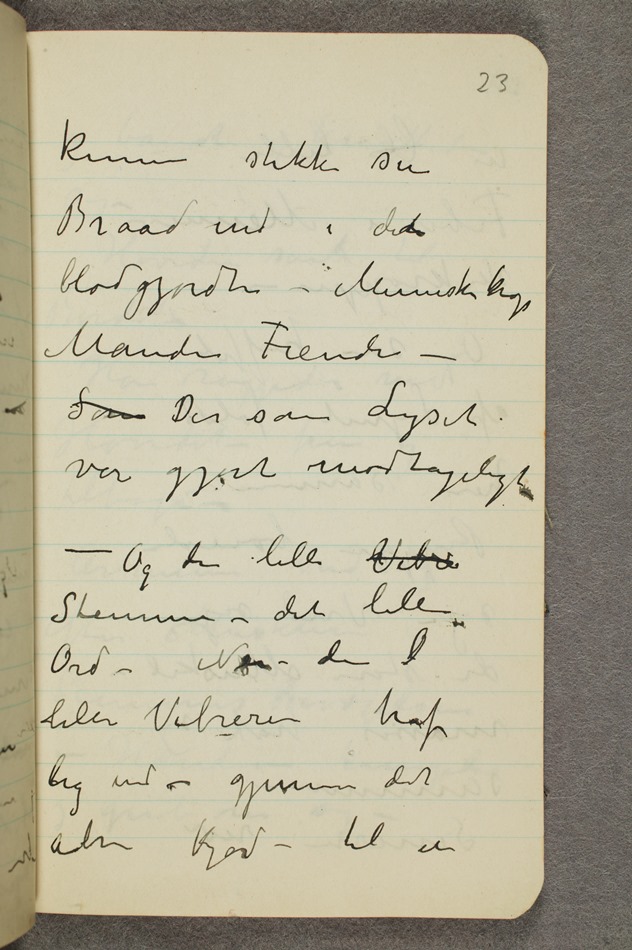 23
kunne stikke sin
Braad ind i det
blodgjordte – Menneskekrop
Mandens Fiende –
Som Der som Lyset
var gjort modtageligt
– Og den lille Vibre
Stemme – det lille
Ord – den l
lille Vibreren traf
sig ind – gjennem det
Kjød – til en